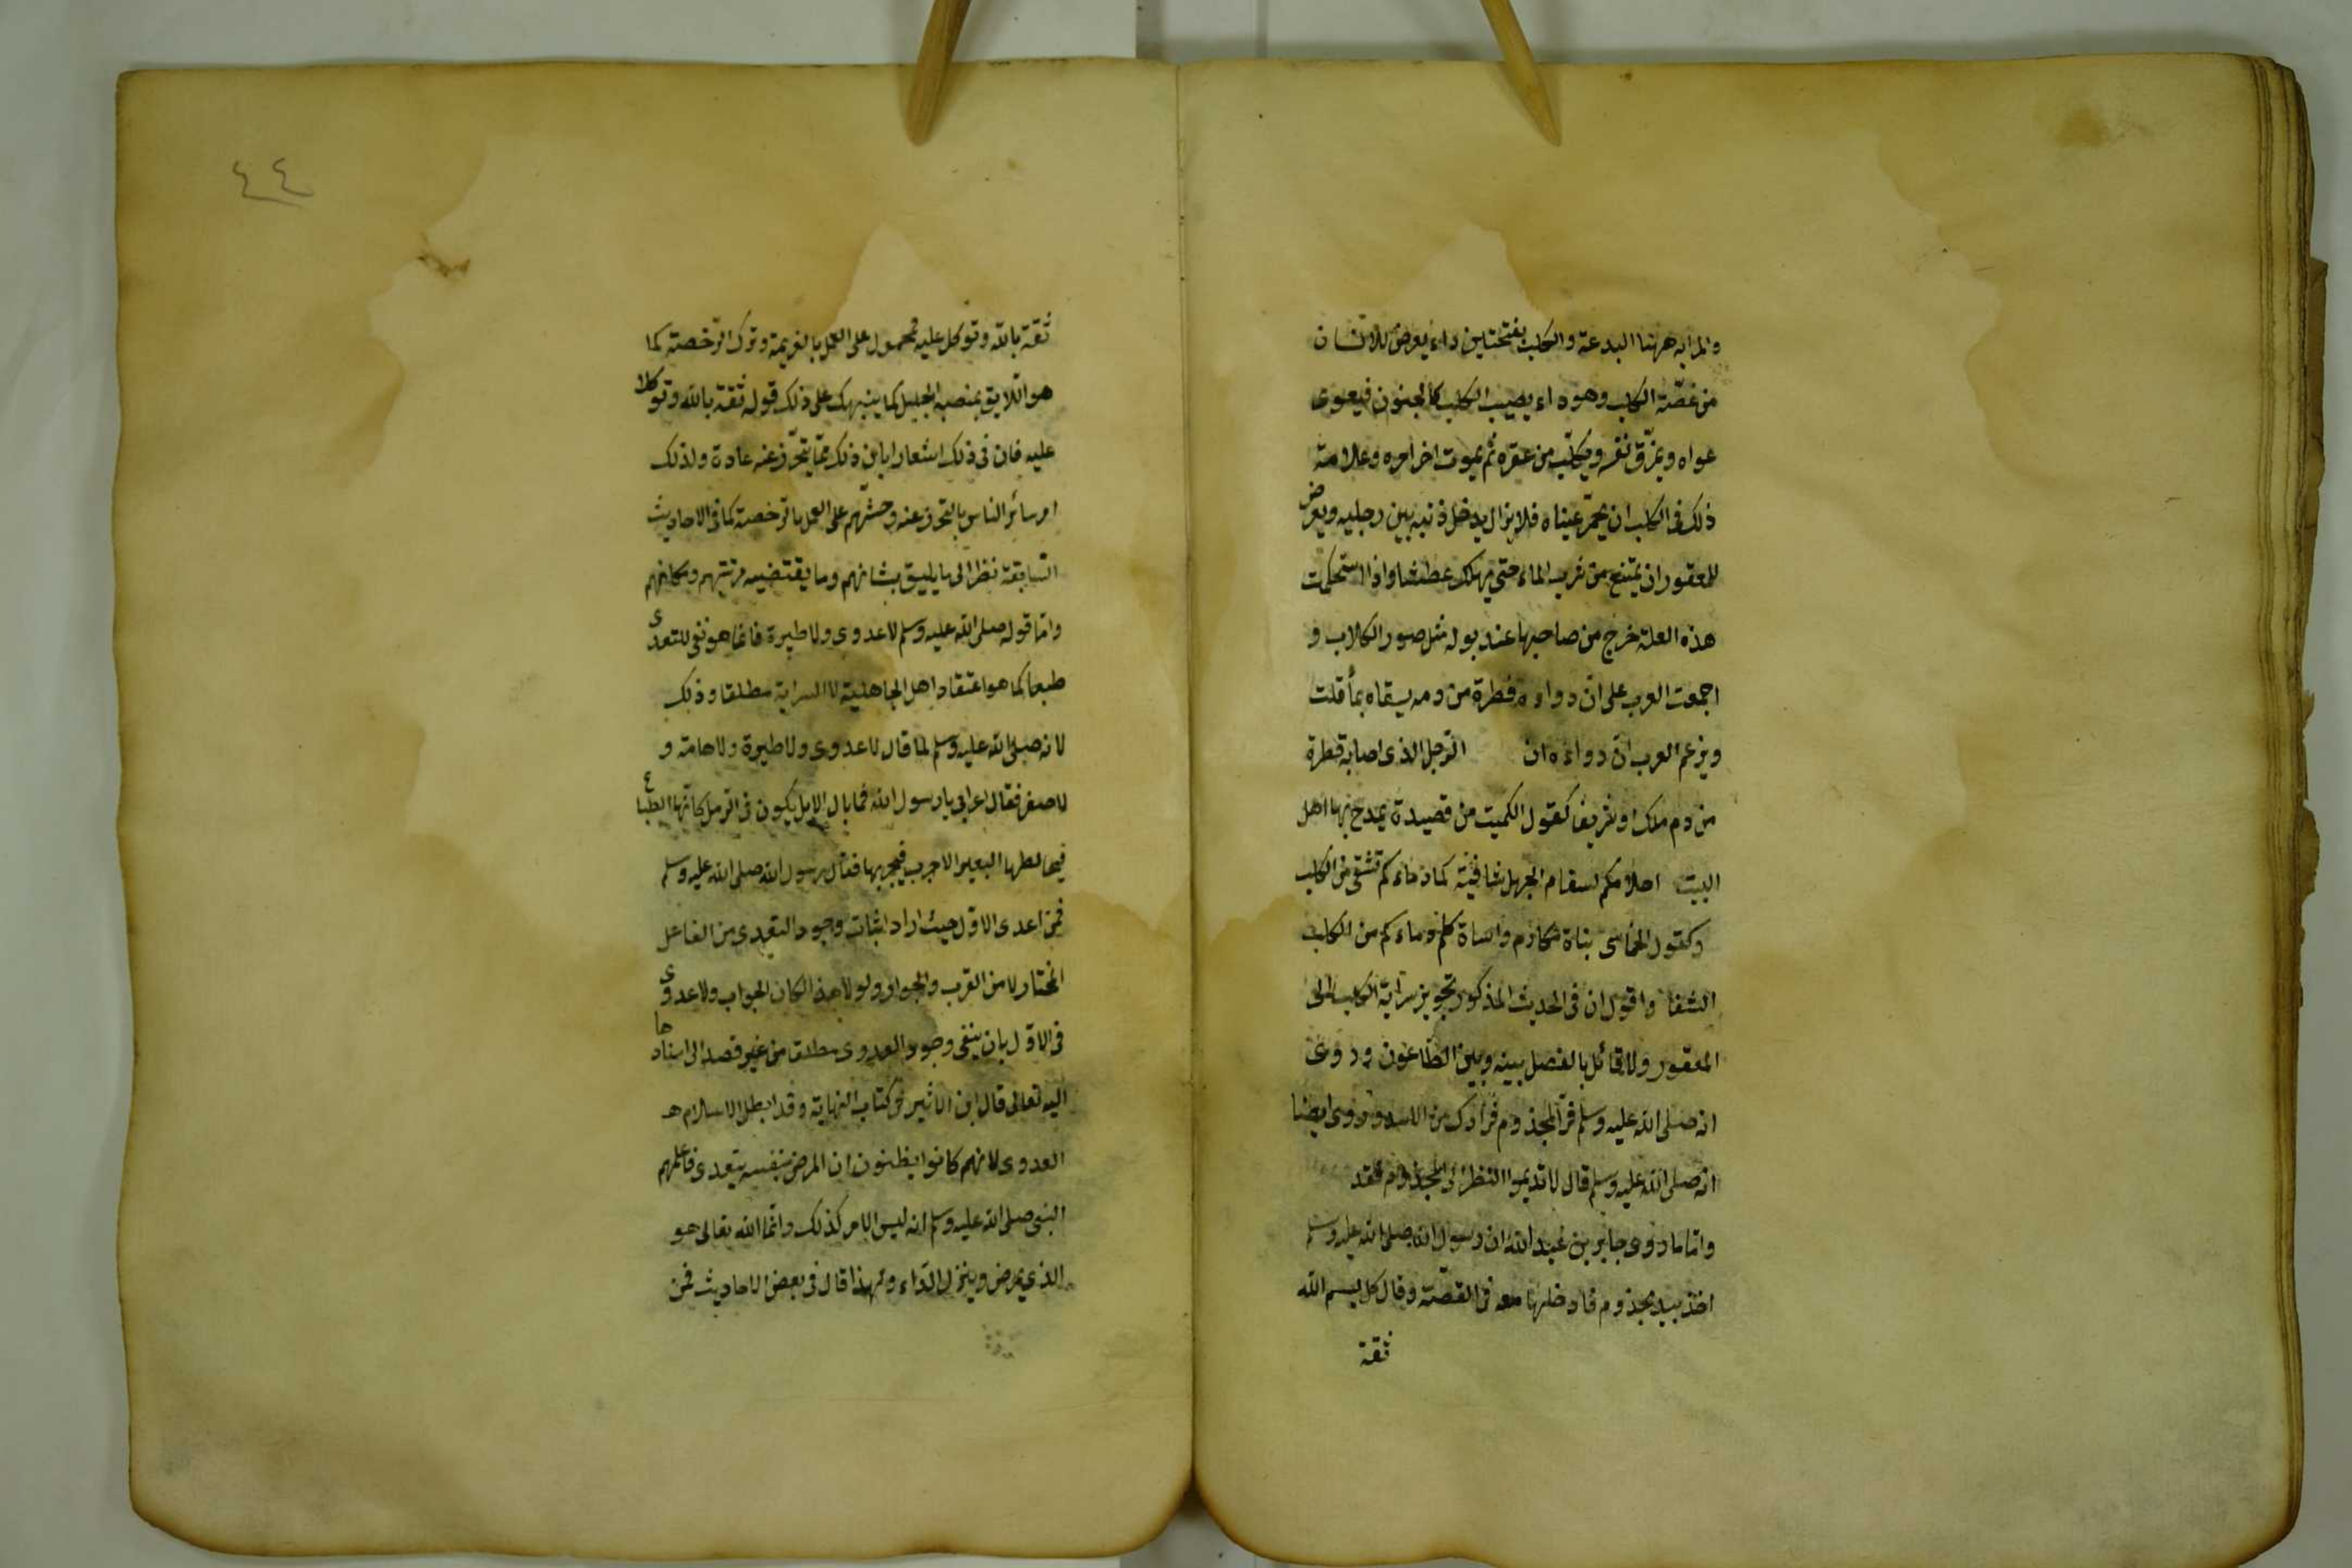 والمراد ههنا البدعة والكلب بفتحتين داء يعرض للانسان
من عضّة الكلب وهو داء يصيب الكلب كالجنون فيعوى
عواه ويمزق نفسه ويكلب من عقره ثم يموت اخر امره وعلامة
ذلك فى الكلب ان يحمرّ عيناه فلا يزال يدخل ذنبه بين رجليه ويعرض
للمعقور ان يمتنع من شرب الماء حتى يهلك عطشا واذا استحكمت
هذه العلة خرج من صاحبها عند بوله مثل صور الكلاب و
اجمعت العرب على ان دواءه قطرة من دم يسقاه بماء قلت
ويزعم العرب ان دواءه ان الرجل الذى اصابه قطرة
من دم ملك او شريف كقول الكميت من قصيدة يمدح بها اهل
البيت احلامكم لسقام الجهل شافية كما دماءكم تشفى من الكلب
وكقول الحماسى بناة مكارم واساة كلم دماءكم من الكلب
الشفا واقول ان فى الحديث المذكور تجويز سراية الكلب الى
المعقور ولا قائل بالفصل بينه وبين الطاعون وروى
انه صلى الله عليه وسلم فرّ المجذوم فرارك من الاسد وروى ايضا
انه صلى الله عليه وسلم قال لا تديموا النظر الى المجذوم فقد
واما ما روى جابر بن عبد الله ان رسول الله صلى الله عليه وسلم
اخذ بيد مجذوم فادخلها معه فى القصّة وقال كل بسم الله
ثقة
٤٤
ثقة بالله وتوكل عليه محمول على العمل بالعزيمة وترك الرّخصة كما
هو اللايق بمنصبه الجليل كما ينبهك على ذلك قوله ثقة بالله وتوكلا
عليه فان فى ذلك اشعارا بان ذلك ممّا يتحرّز عنه عادة ولذلك
امر سائر الناس بالتحرز عنه وحثّهم على العمل بالرّخصة كما فى الاحاديث
السّابقة نظرا الى ما يليق بشانهم وما يقتضيه مرتبتهم ومكانهم
وامّا قوله صلى الله عليه وسلم لا عدوى ولا طيرة فانما هو نفى للتعدى
طبعا كما هو اعتقاد اهل الجاهلية لا السراية مطلقا وذلك
لانه صلى الله عليه وسلم لما قال لا عدوى ولا طيرة ولا هامة و
لا صفر فقال اعرابى يا رسول الله فما بال الابل يكون فى الرمل كانّها الظباء
فيخالطها البعير الاجرب فيجربها فقال رسول الله صلى الله عليه وسلم
فمن اعدى الاوّل حيث اراد اثبات وجود التعدى من الفاعل
المختار لا من القرب والجوار ولولا هذا لكان الجواب ولا عدوى
فى الاوّل بان ينفى وجود العدوى مطلقا من غير قصد الى اسنادها
اليه تعالى قال ابن الاثير فى كتاب النهاية وقد ابطل الاسلام
العدوى لانهم كانوا يظنون ان المرض بنفسه يتعدى فاعلمهم
النبى صلى الله عليه وسلم انه ليس الامر كذلك وانّما الله تعالى هو
الذى يمرض وينزل الدّاء ولهذا قال فى بعض الاحاديث فمن